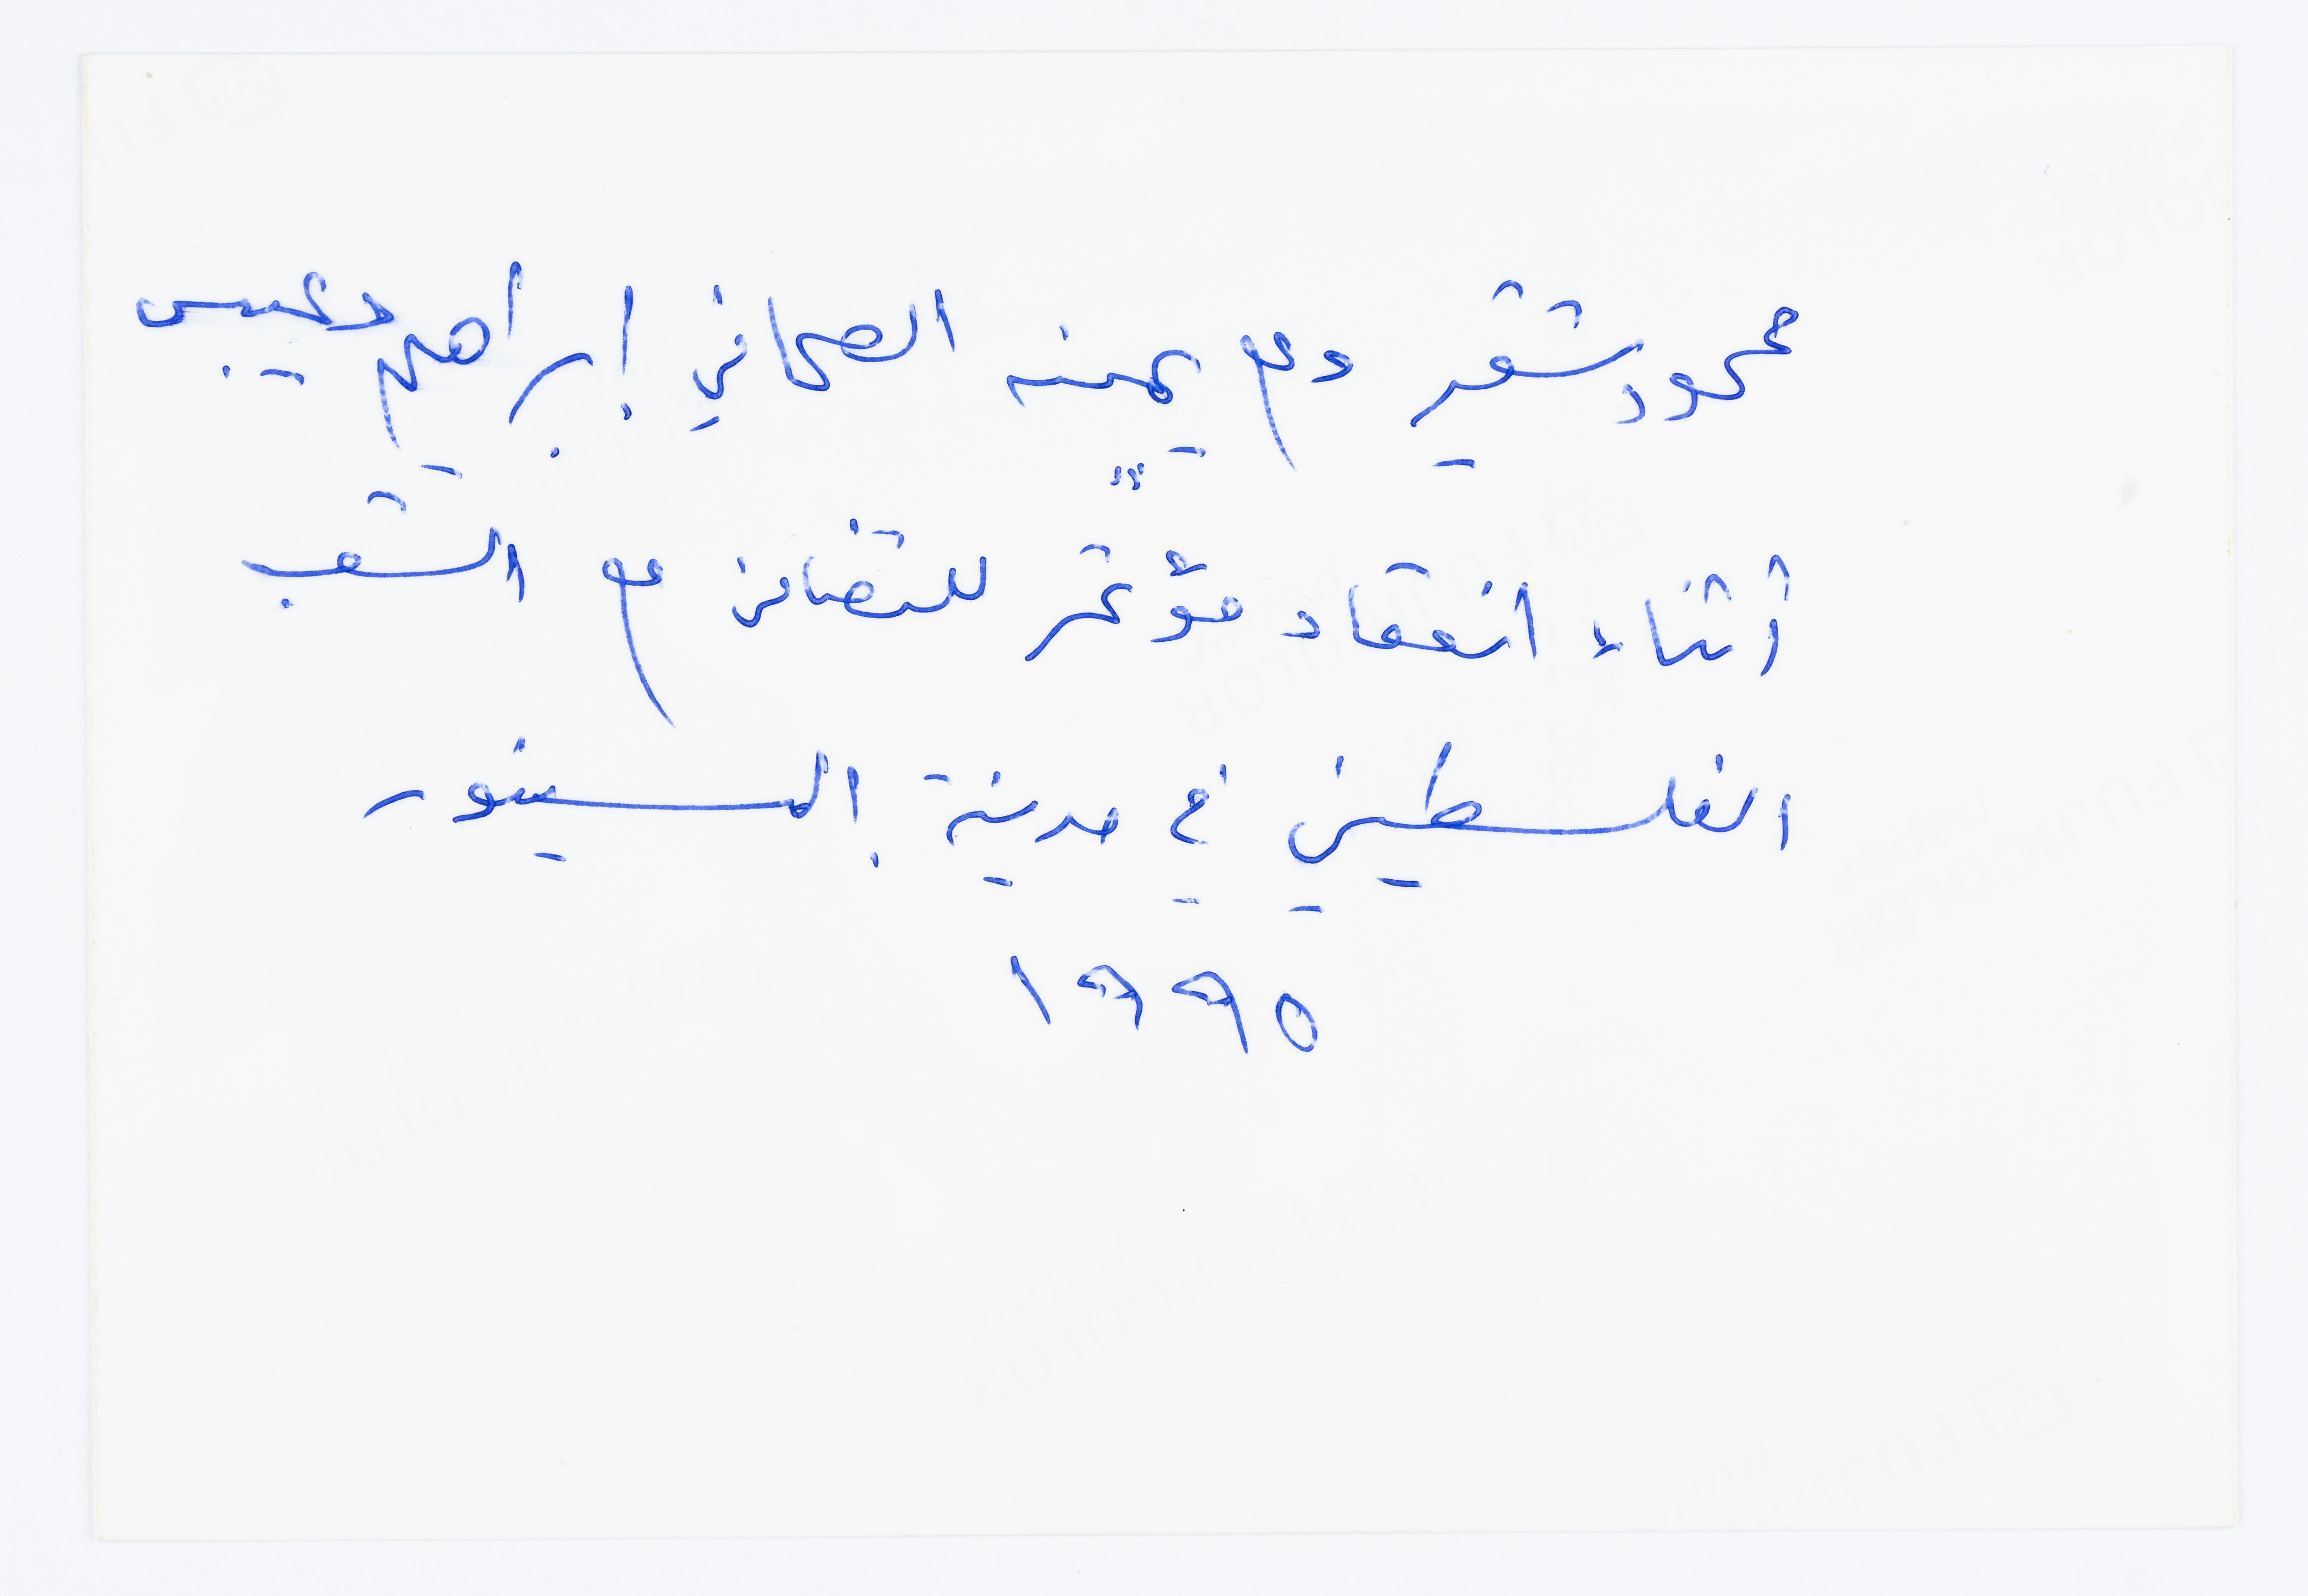 محمود شقير ومع يمينه الصحافي إبراهيم دعيبس
أثناء انعقاد مؤتمر للتضامن مع الشعب
الفلسطيني في مدينة إلسينور
١٩٩٥